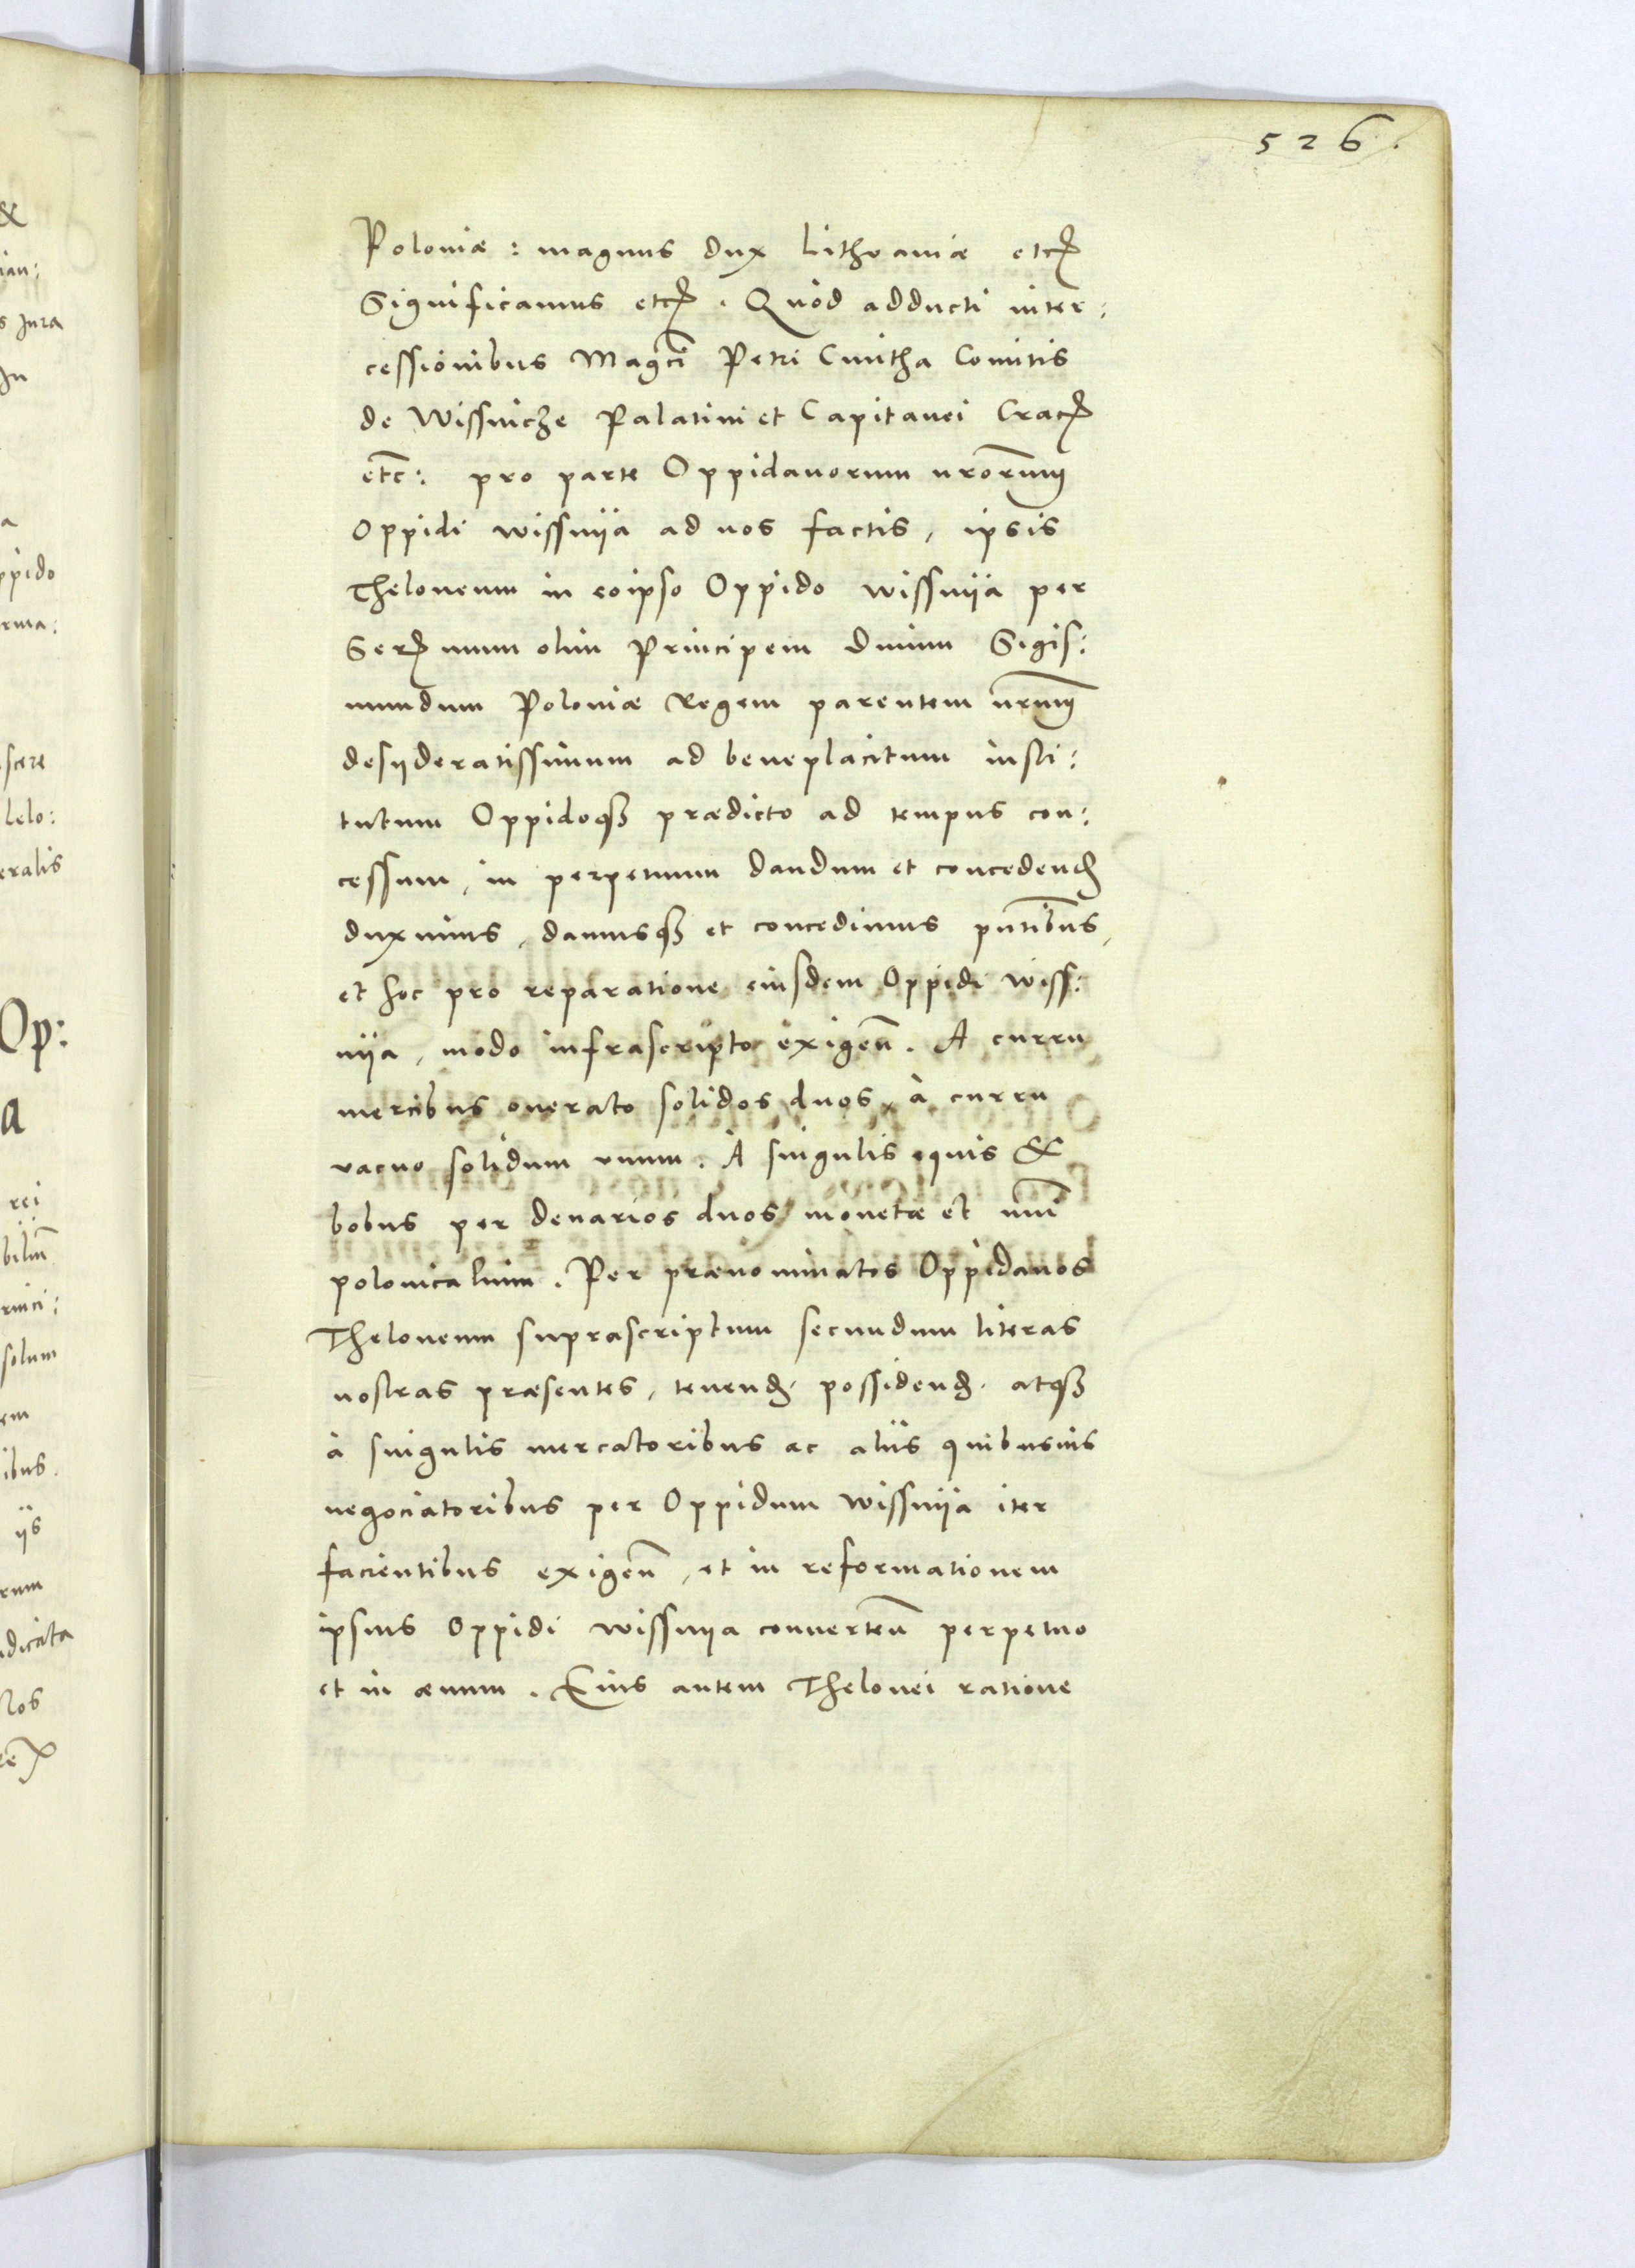 526.
Poloniæ : magnus dux Lithvaniæ etc̃
Significamus etc̃ . Quòd adducti inter:
cessionibus Magci Petri Cmitha Comitis
de Wissnicze Palatini et Capitanei Crac̃
etc̃: pro parte Oppidanorum nr̃orum
Oppidi wissnija ad nos factis, ipsis
Theloneum in eoipso Oppido wissnija per
Ser̃mum olim Principem dnum Sigis:
mundum Poloniæ Regem parentem nr̃um
desyderatissimum ad beneplacitum insti:
tutum Oppidoqȝ prædicto ad tempus con:
cessum, in perpetuum dandum et concedend̃
duximus, damusqȝ et concedimus pñtibus,
et hoc pro reparatione eiusdem Oppidi wiss:
nija, modo infrascripto exigen̄. A curru
mercibus onerato solidos duos, à curru
vacuo solidum vnum. A singulis equis &
bobus per denarios duos monetæ et nũi
polonicalium. Per prænominatos Oppidanos
Theloneum suprascriptum secundum literas
nostras præsentes, tenend̃. possidend̃. atqȝ
à singulis mercatoribus ac alijs quibusuis
negociatoribus per Oppidum wissnija iter
facientibus exigen̄, et in reformationem
ipsius Oppidi wissnija conuerten̄ perpetuo
et in æuum. Eius autem Thelonei ratione